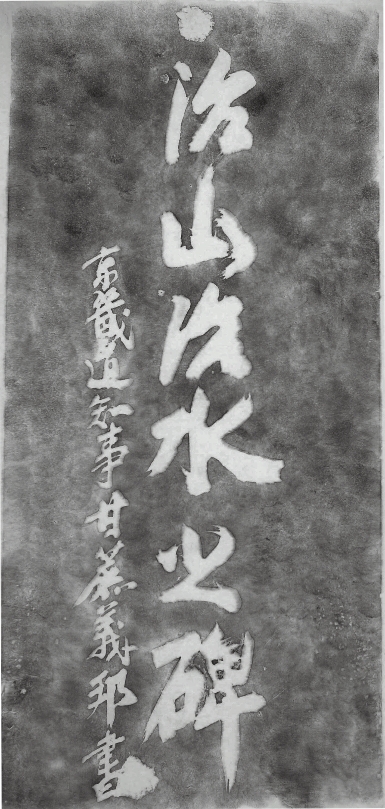 治山治水之碑
京畿道知事甘蔗義邦書